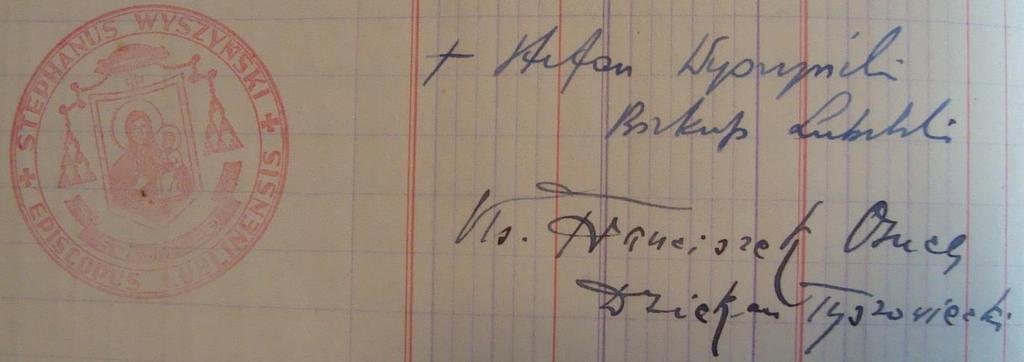 STEPHANUS WYSZYŃSKI
EPISCOPUS LUBLINENSIS
+ Stefan Wyszyński
Biskup Lubelski
Ks. Franciszek
Dziekan Tyszowiecki